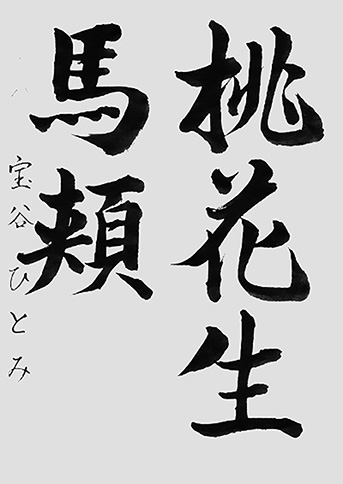 桃花生
馬頬
宝谷ひとみ